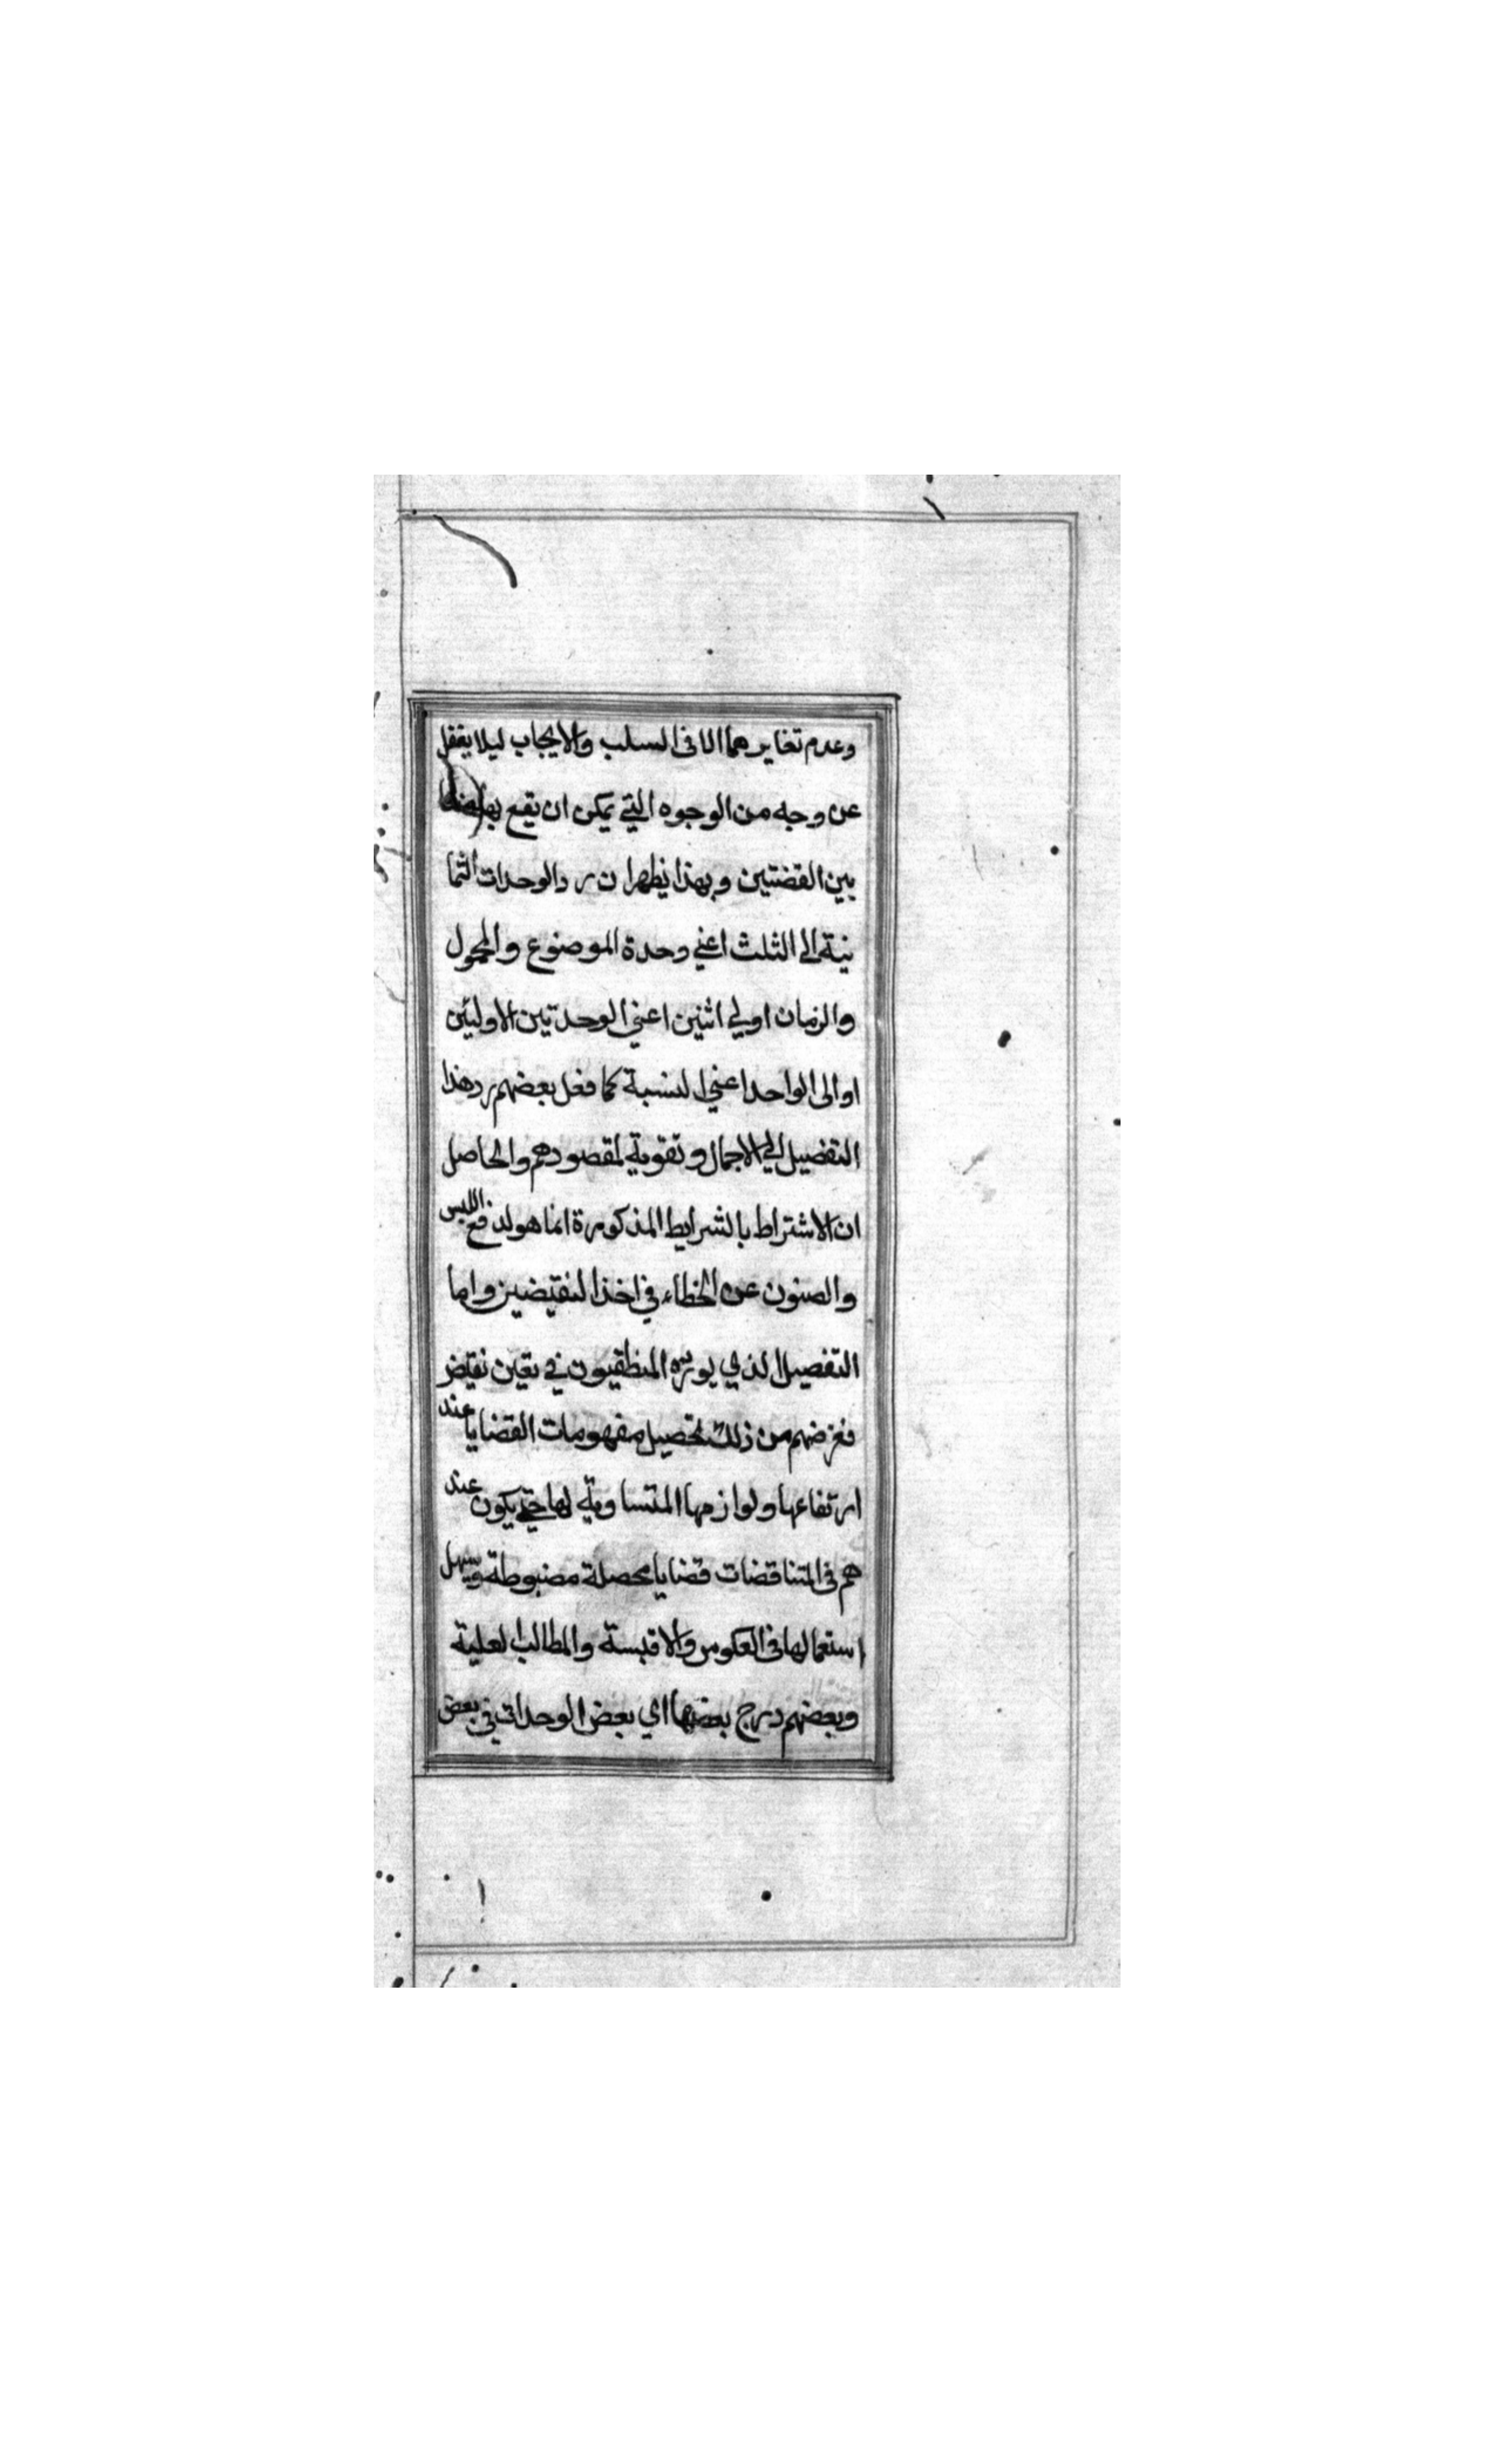 وعدم تغايرهما الا فى السلب والايجاب ليلا يغفل
عن وجه من الوجوه التي يمكن ان تقع بها
بين القضتين وبهذا يظهر ان رد الوحدات الثما
نية الى الثلث اعني وحدة الموضوع والمحمول
والزمان اولي اثنين اعني الوحدتين الاوليين
او الى الواحد اعني النسبة كما فعل بعضهم رد هذا
التفضيل الي الاجمال وتقوية لمقصودهم والحاصل
ان الاشتراط بالشرايط المذكورة انما هو لدفع اللبس
والصنون عن الخطاء في اخذ النقيضين واما
التفصيل الذي يورده المنطقيون في تعين نقيض
فغرضهم من ذلك تحصيل مفهومات القضايا عند
ارتفاعها ولوازمها المتساوية لها حتي يكون عند
هم فى المتناقضات قضايا محصلة مضبوطة ويسهل
استعمالها فى العكوس والاقيسة والمطالب العلية
وبعضهم درج بعضها اي بعض الوحدات في بعض